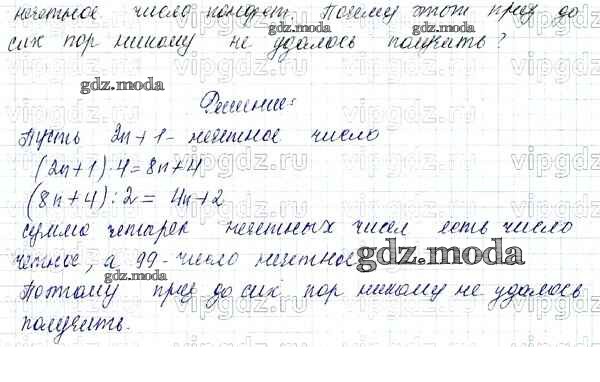 нечетное число монет. Почему этот приз до
сих пор никому не удалось получить?
gdz.moda
Решение:
Пусть 2n+1 - нечетное число
(2n+1)·4=8n+4
(8n+4):2= 4n+2
сумма четырех нечетных чисел есть число
четное, а 99 - число нечетное
gdz.moda
Поэтому приз до сих пор никому не удалось
получить.